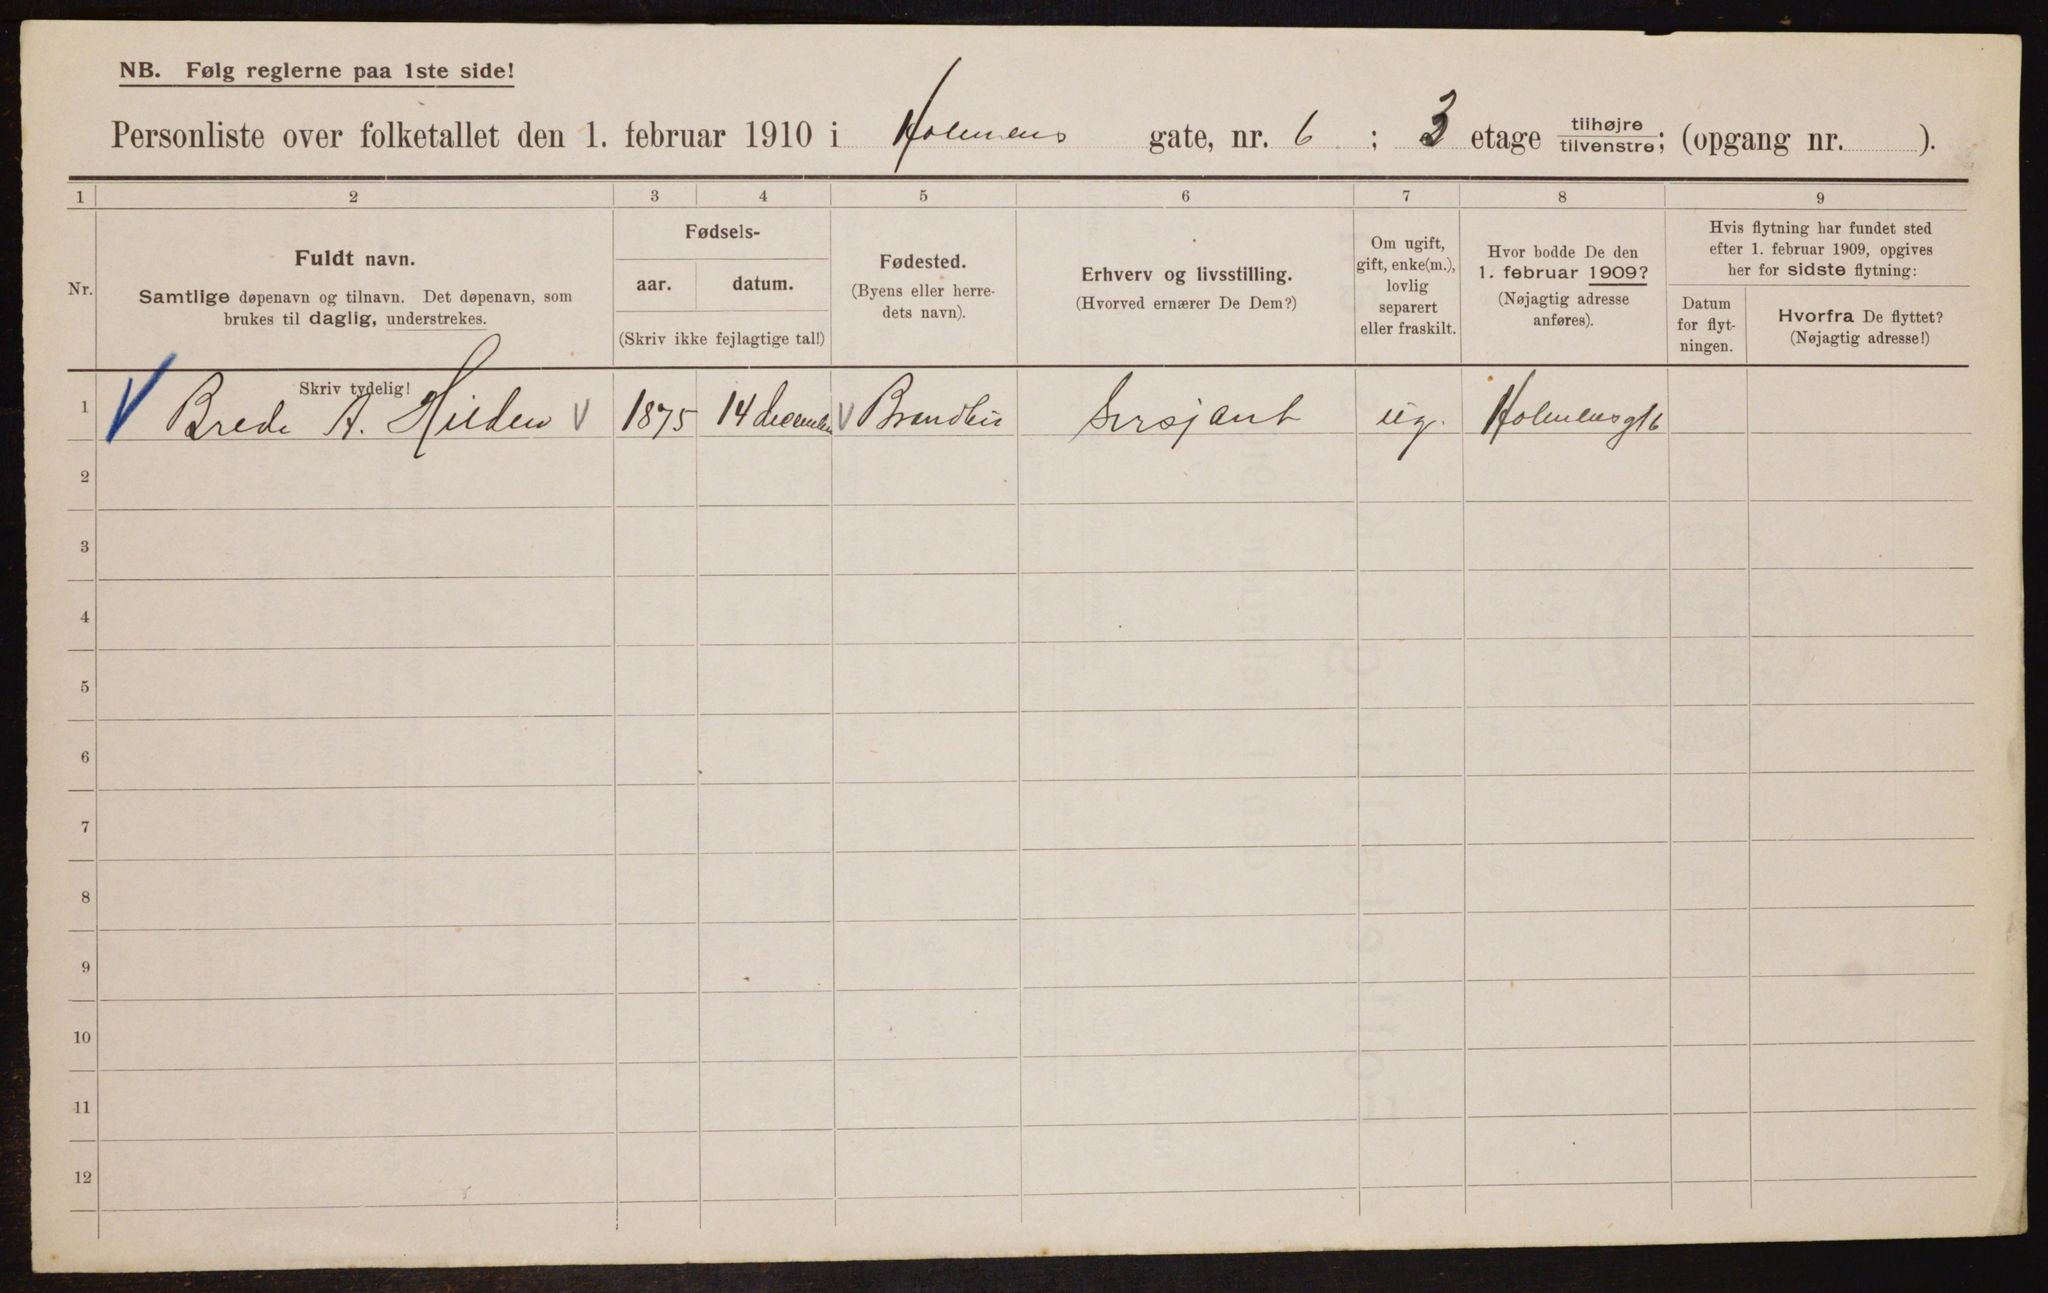 NB. Følg reglerne paa 1ste side!
Personliste over folketallet den 1. februar 1910 i Holmens gate, nr. 6 ; 3 etage tilhøjre/tilvenstre; (opgang nr. ).
1 2 3 4 5 6 7 8 9
Nr.
Fuldt navn.
Samtlige døpenavn og tilnavn. Det døpenavn, som
brukes til daglig, understrekes.
Fødsels-
aar. datum.
(Skriv ikke fejlagtige tal!)
Fødested.
(Byens eller herre-
dets navn).
Erhverv og livsstilling.
(Hvorved ernærer De Dem?)
Om ugift,
gift, enke(m.),
lovlig
separert
eller fraskilt.
Hvor bodde De den
1. februar 1909?
(Nøjagtig adresse
anføres).
Hvis flytning har fundet sted
efter 1. februar 1909, opgives
her for sidste flytning:
Datum
for flyt-
ningen.
Hvorfra De flyttet?
(Nøjagtig adresse!)
Skriv tydelig!
1 V Brede A. Hilden V 1875 14 december V Brandbu Sersjant ug. Holmensgt 6
2
3
4
5
6
7
8
9
10
11
12